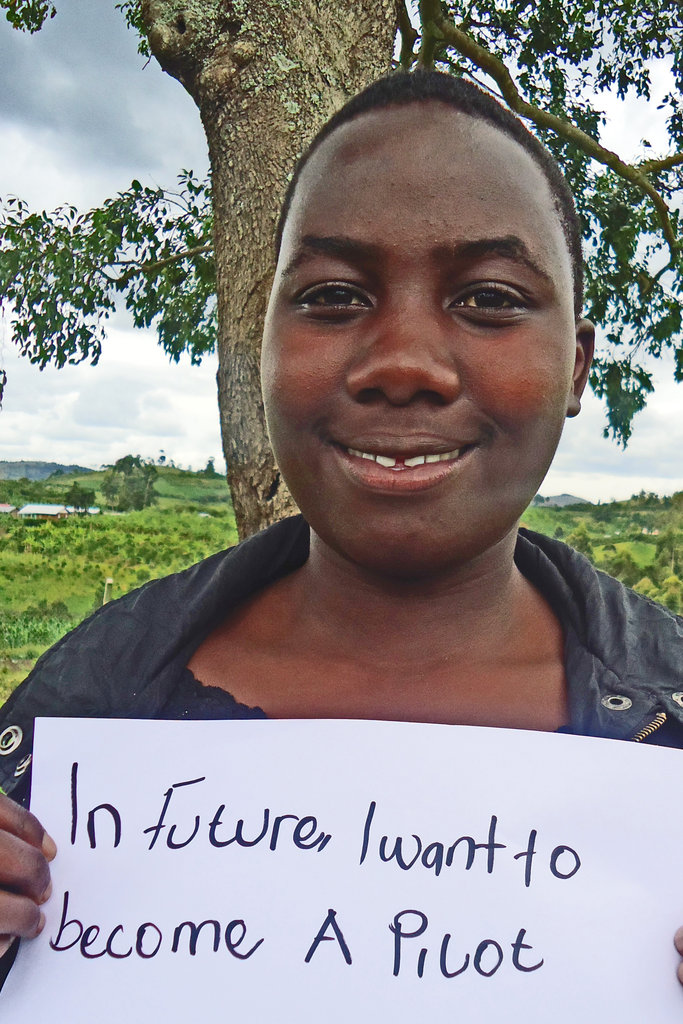 In Future,, I want to
become A Pilot